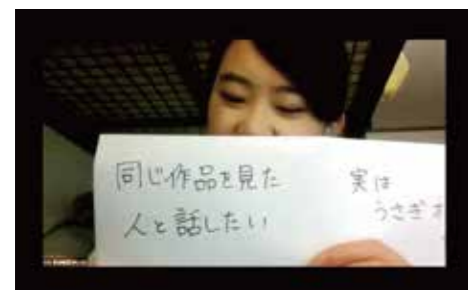 同じ作品を見た
人と話したい
実は
うさぎ